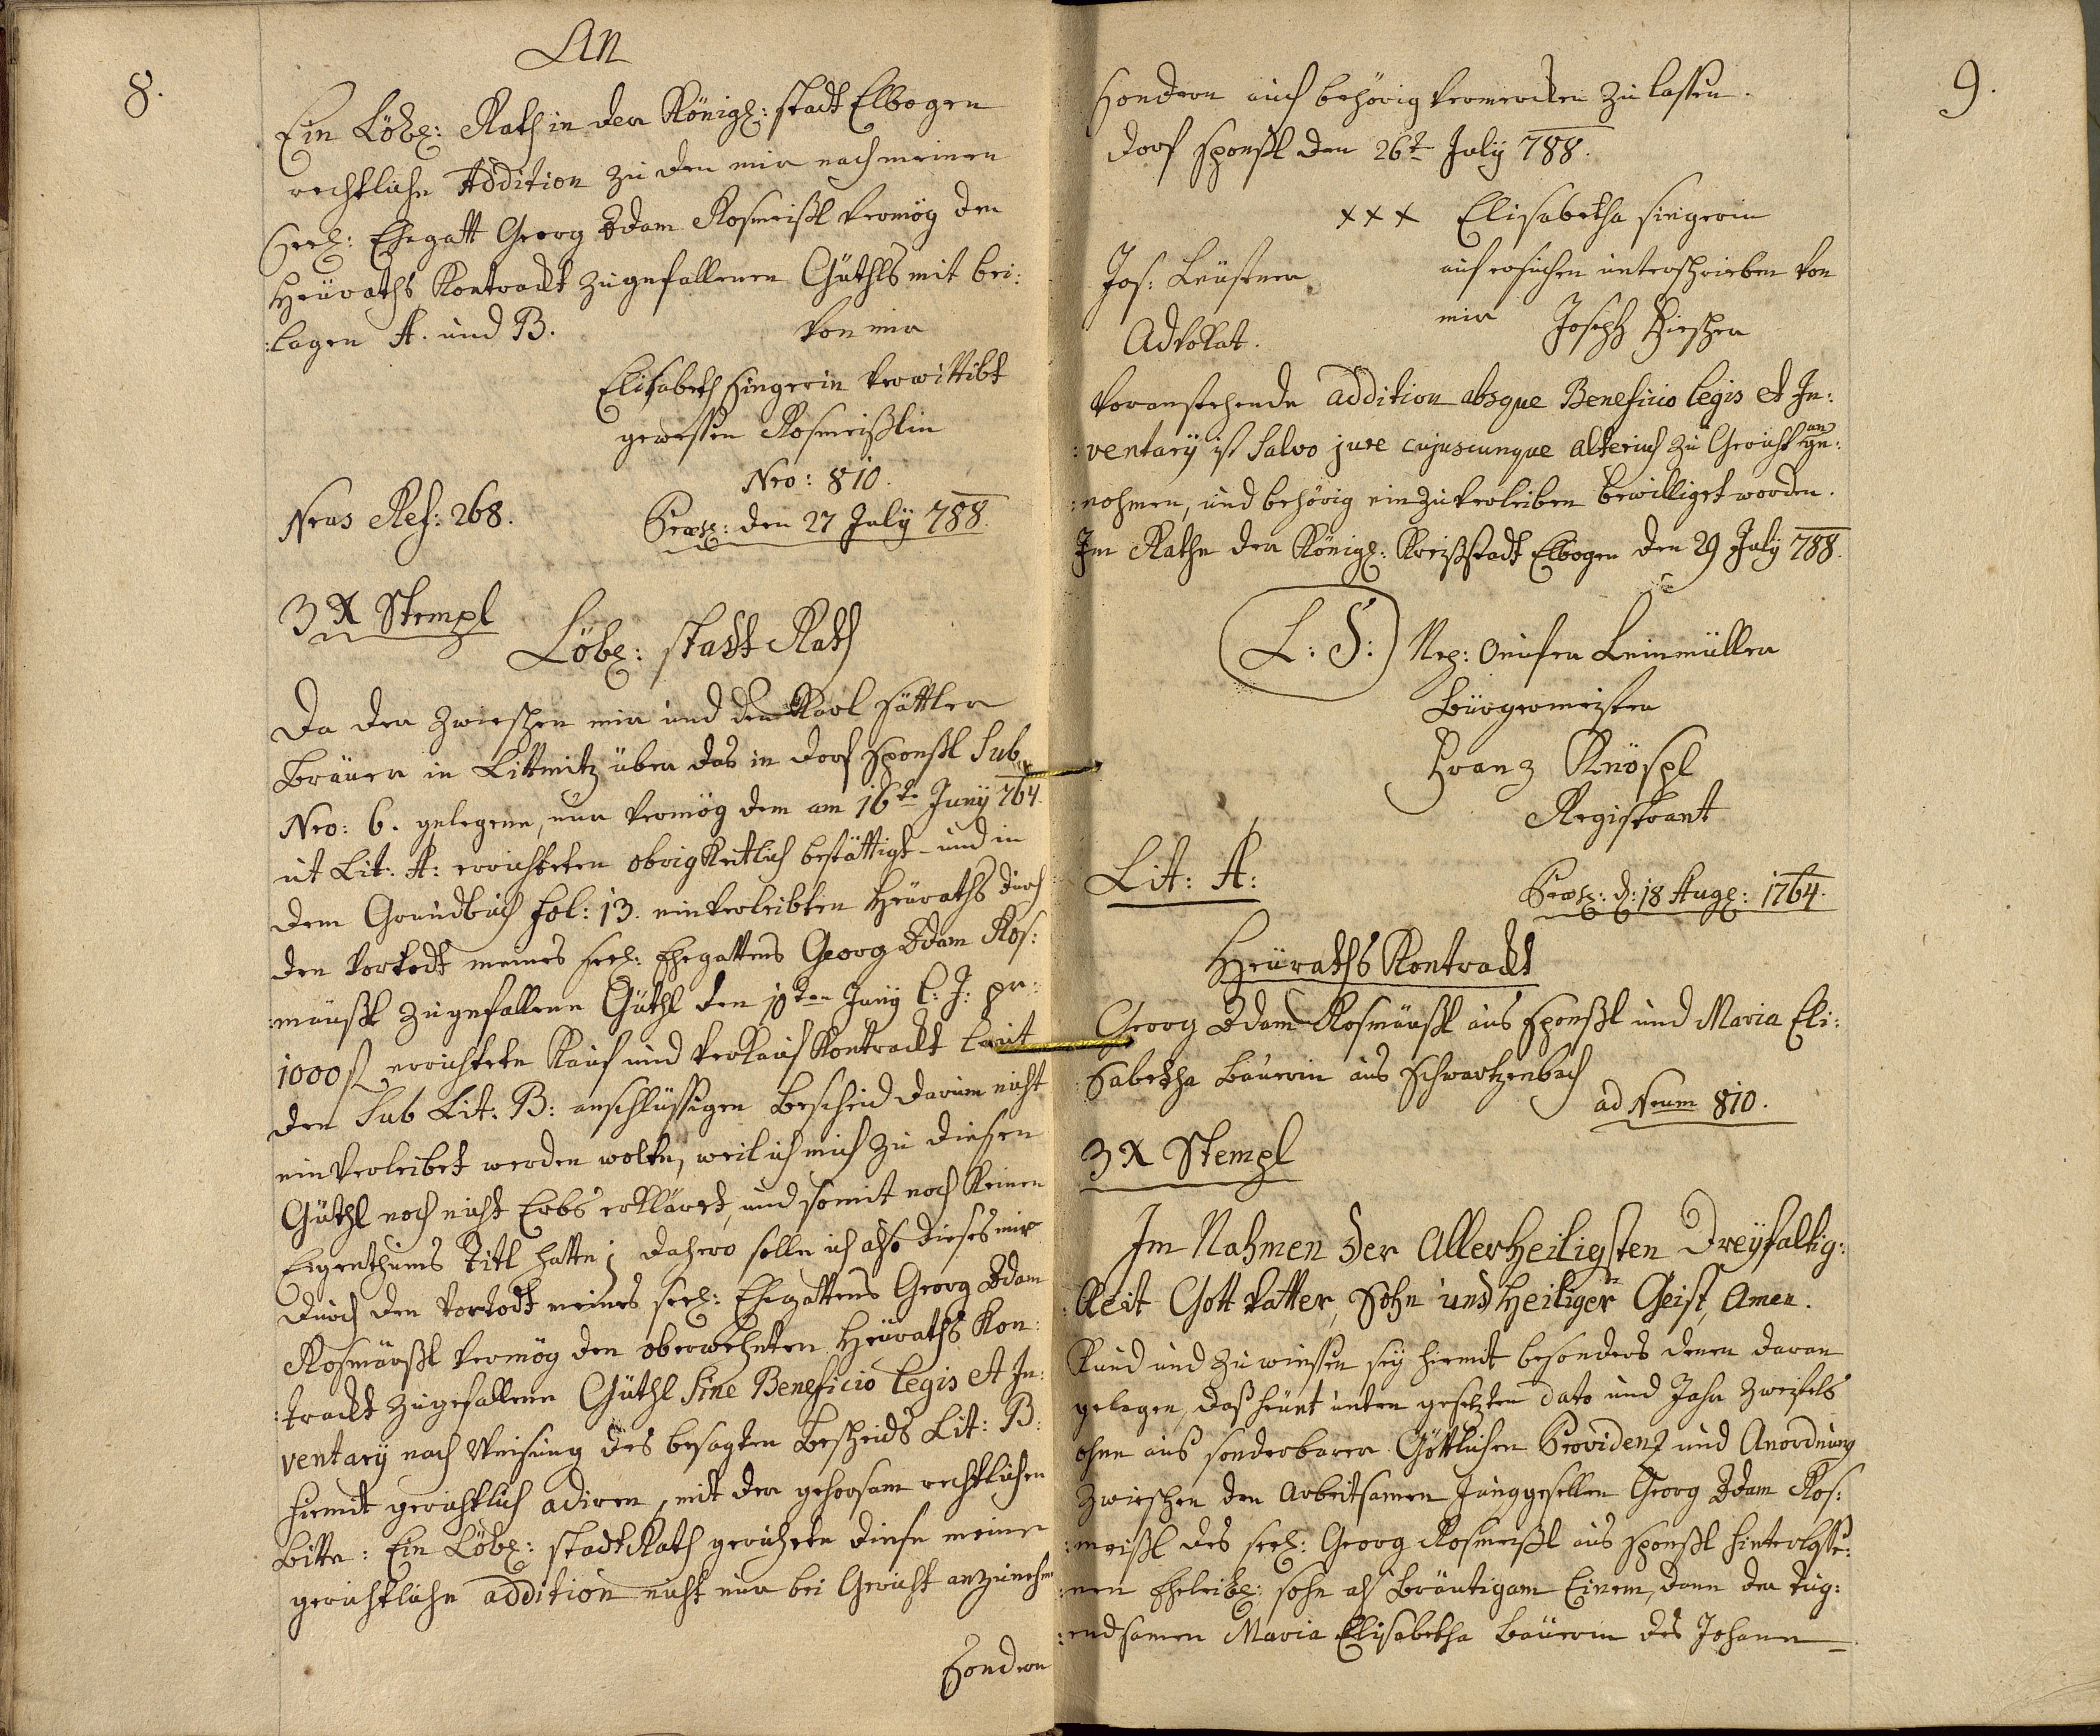 8.
An
Ein Löbl: Rath in der Königl: stadt Elbogen
rechtliche Addition zu den mir nach meinen
Seel: Ehegatt Georg Adam Rosmeißl vermög den
Heuraths Kontrackt zugefallenen Güthls mit bei:
:lagen A. und B.
von mir
Elisabeth Singerin verwittibt
gewessene Rosmeißlin
Nro: 810.
Neus Ref: 268.
Præs: den 27 July 788.
3 X Stempl
Löbl: stadt Rath
Da der zwieschen mir und dem Karl Sattler
Bräuer in Littmitz über das in Dorf Sponßl Sub
Nro: 6. gelegene, nur vermög dem am 16te Juny 764.
ut Lit: A: errichteten obrigkeitlich bestättigt- und in
dem Grundbuch fol: 13. einverleibten Heuraths durch
den vortodt meines seel: Ehegattens Georg Adam Ros:
:mäußl zugefallene Güthl den 10ten Juny l: J: pr:
1000 f errichtete Kauf und verkauf Kontrackt laut
den Sub Lit: B: anschlüssigen Bescheid darum nicht
einverleibet werden wolte, weil ich mich zu diesen
Güthl noch nicht Erbs erklärt, und somit noch keinen
Eigenthums Titl hatte; Dahero solle ich also dieses mir
durch den vortodt meines seel: Ehegattens Georg Adam
Rosmäußl vermög den oberwehnten Heuraths Kon:
:trackt zugefallene Güthl Sine Beneficio legis et In:
ventary nach Weisung des besagten Bescheids Lit: B:
hiemit gerichtlich adiren, mit der gehorsam rechtlichen
bitte: Ein Löbl: stadt Rath geruhete diese meine
gerichtliche addition nicht nur bei Gericht anzunehm
Sondern
9.
Sondern auch behörig vermercken zu lassen.
Dorf Sponßl den 26t July 788.
xxx Elisabetha Singerin
Jos: Leustner
auf ersuchen unterschrieben von
Advokat.
mir Joseph Fischer
Voranstehende addition absque Beneficio legis et In:
:ventary ist Salvo jure cujuscunque alterius zu Gericht ange:
:nohmen, und behörig einzuverleiben bewilliget worden.
Im Rathe der Königl: Kreißstadt Elbogen den 29 July 788.
L: S:
Nep: Leinmüller
Bürgermeister
Franz Knöspl
Registrant
Lit: A:
Præs: d: 18 Aug: 1764.
Heuraths Kontrackt
Georg Adam Rosmäußl aus Sponßl und Maria Eli:
:Sabetha Bäuerin aus Schwartzenbach
ad Neum 810.
3 X Stempl
Im Nahmen der Allerheiligsten Dreyfaltig:
:keit Gott Vatter, Sohn und Heiliger Geist, Amen.
Kund und zu wiessen sey hiemit besonders denen daran
gelegen, daß heunt unten gesetzten dato und Jahr zweifels
ohne aus sonderbarer Göttlichen Providenz und Anordnung
zwieschen den Arbeitsamen Junggesellen Georg Adam Ros:
:meißl des seel: Georg Rosmeißl aus Sponßl hinterlasse:
:nen Eheleibl: sohn als Bräutigam Einem, dann der tug:
:endsamen Maria Elisabetha Bäuerin des Johann